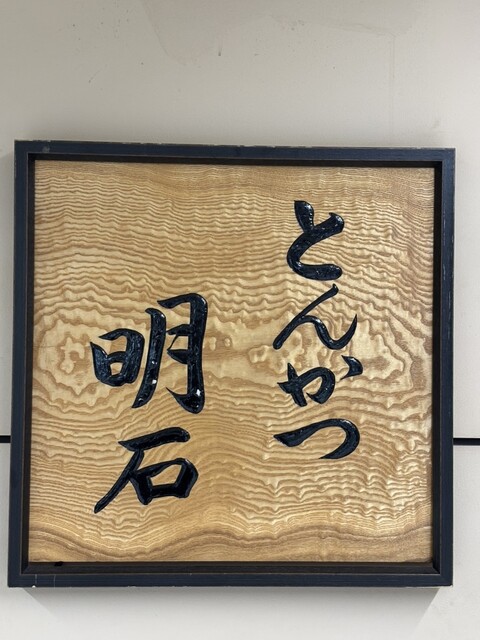 とんかつ
明石